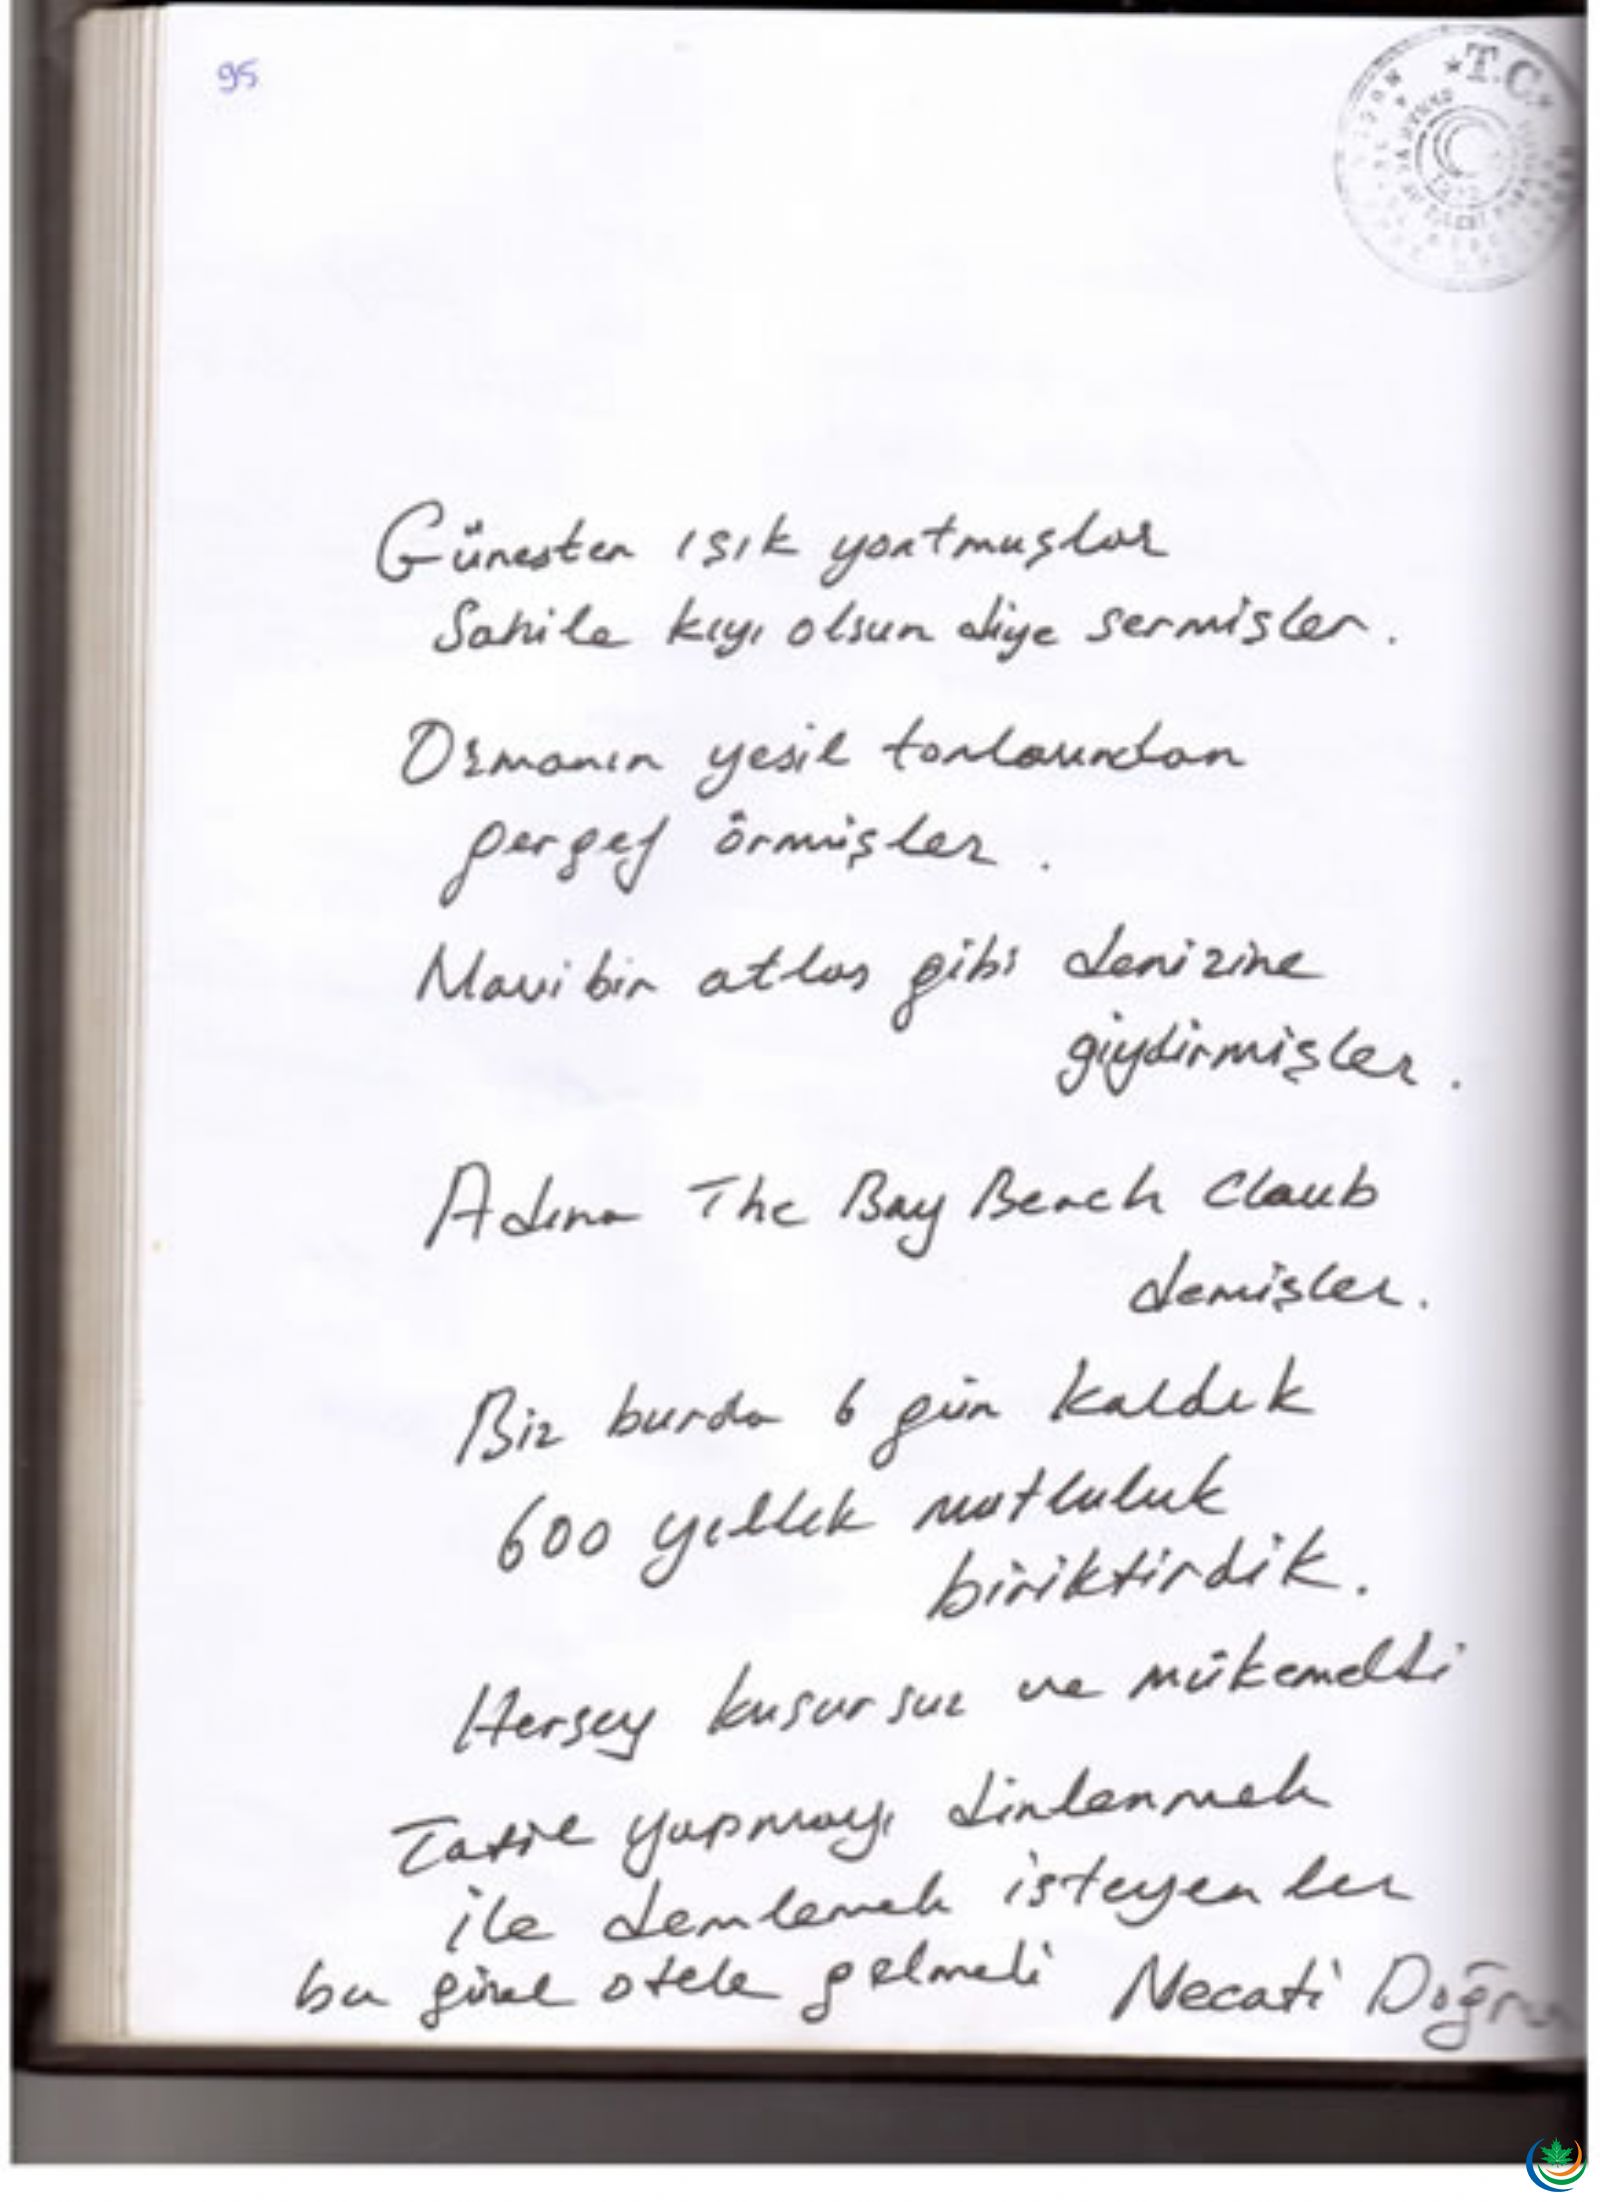 95
★ T.C. ★
Güneşten ışık yontmuşlar
Sahile kıyı olsun diye sermişler.
Ormanın yeşil tonlarından
gergef örmişler.
Mavi bir atlas gibi denizine
giydirmişler.
Adına The Bay Beach Claub
demişler.
Biz burda 6 gün kaldık
600 yıllık mutluluk
biriktirdik.
Herşey kusursuz ve mükemeldi
Tatil yapmayı dinlenmek
ile demlemek isteyenler
bu güzel otele gelmeli Necati Doğru